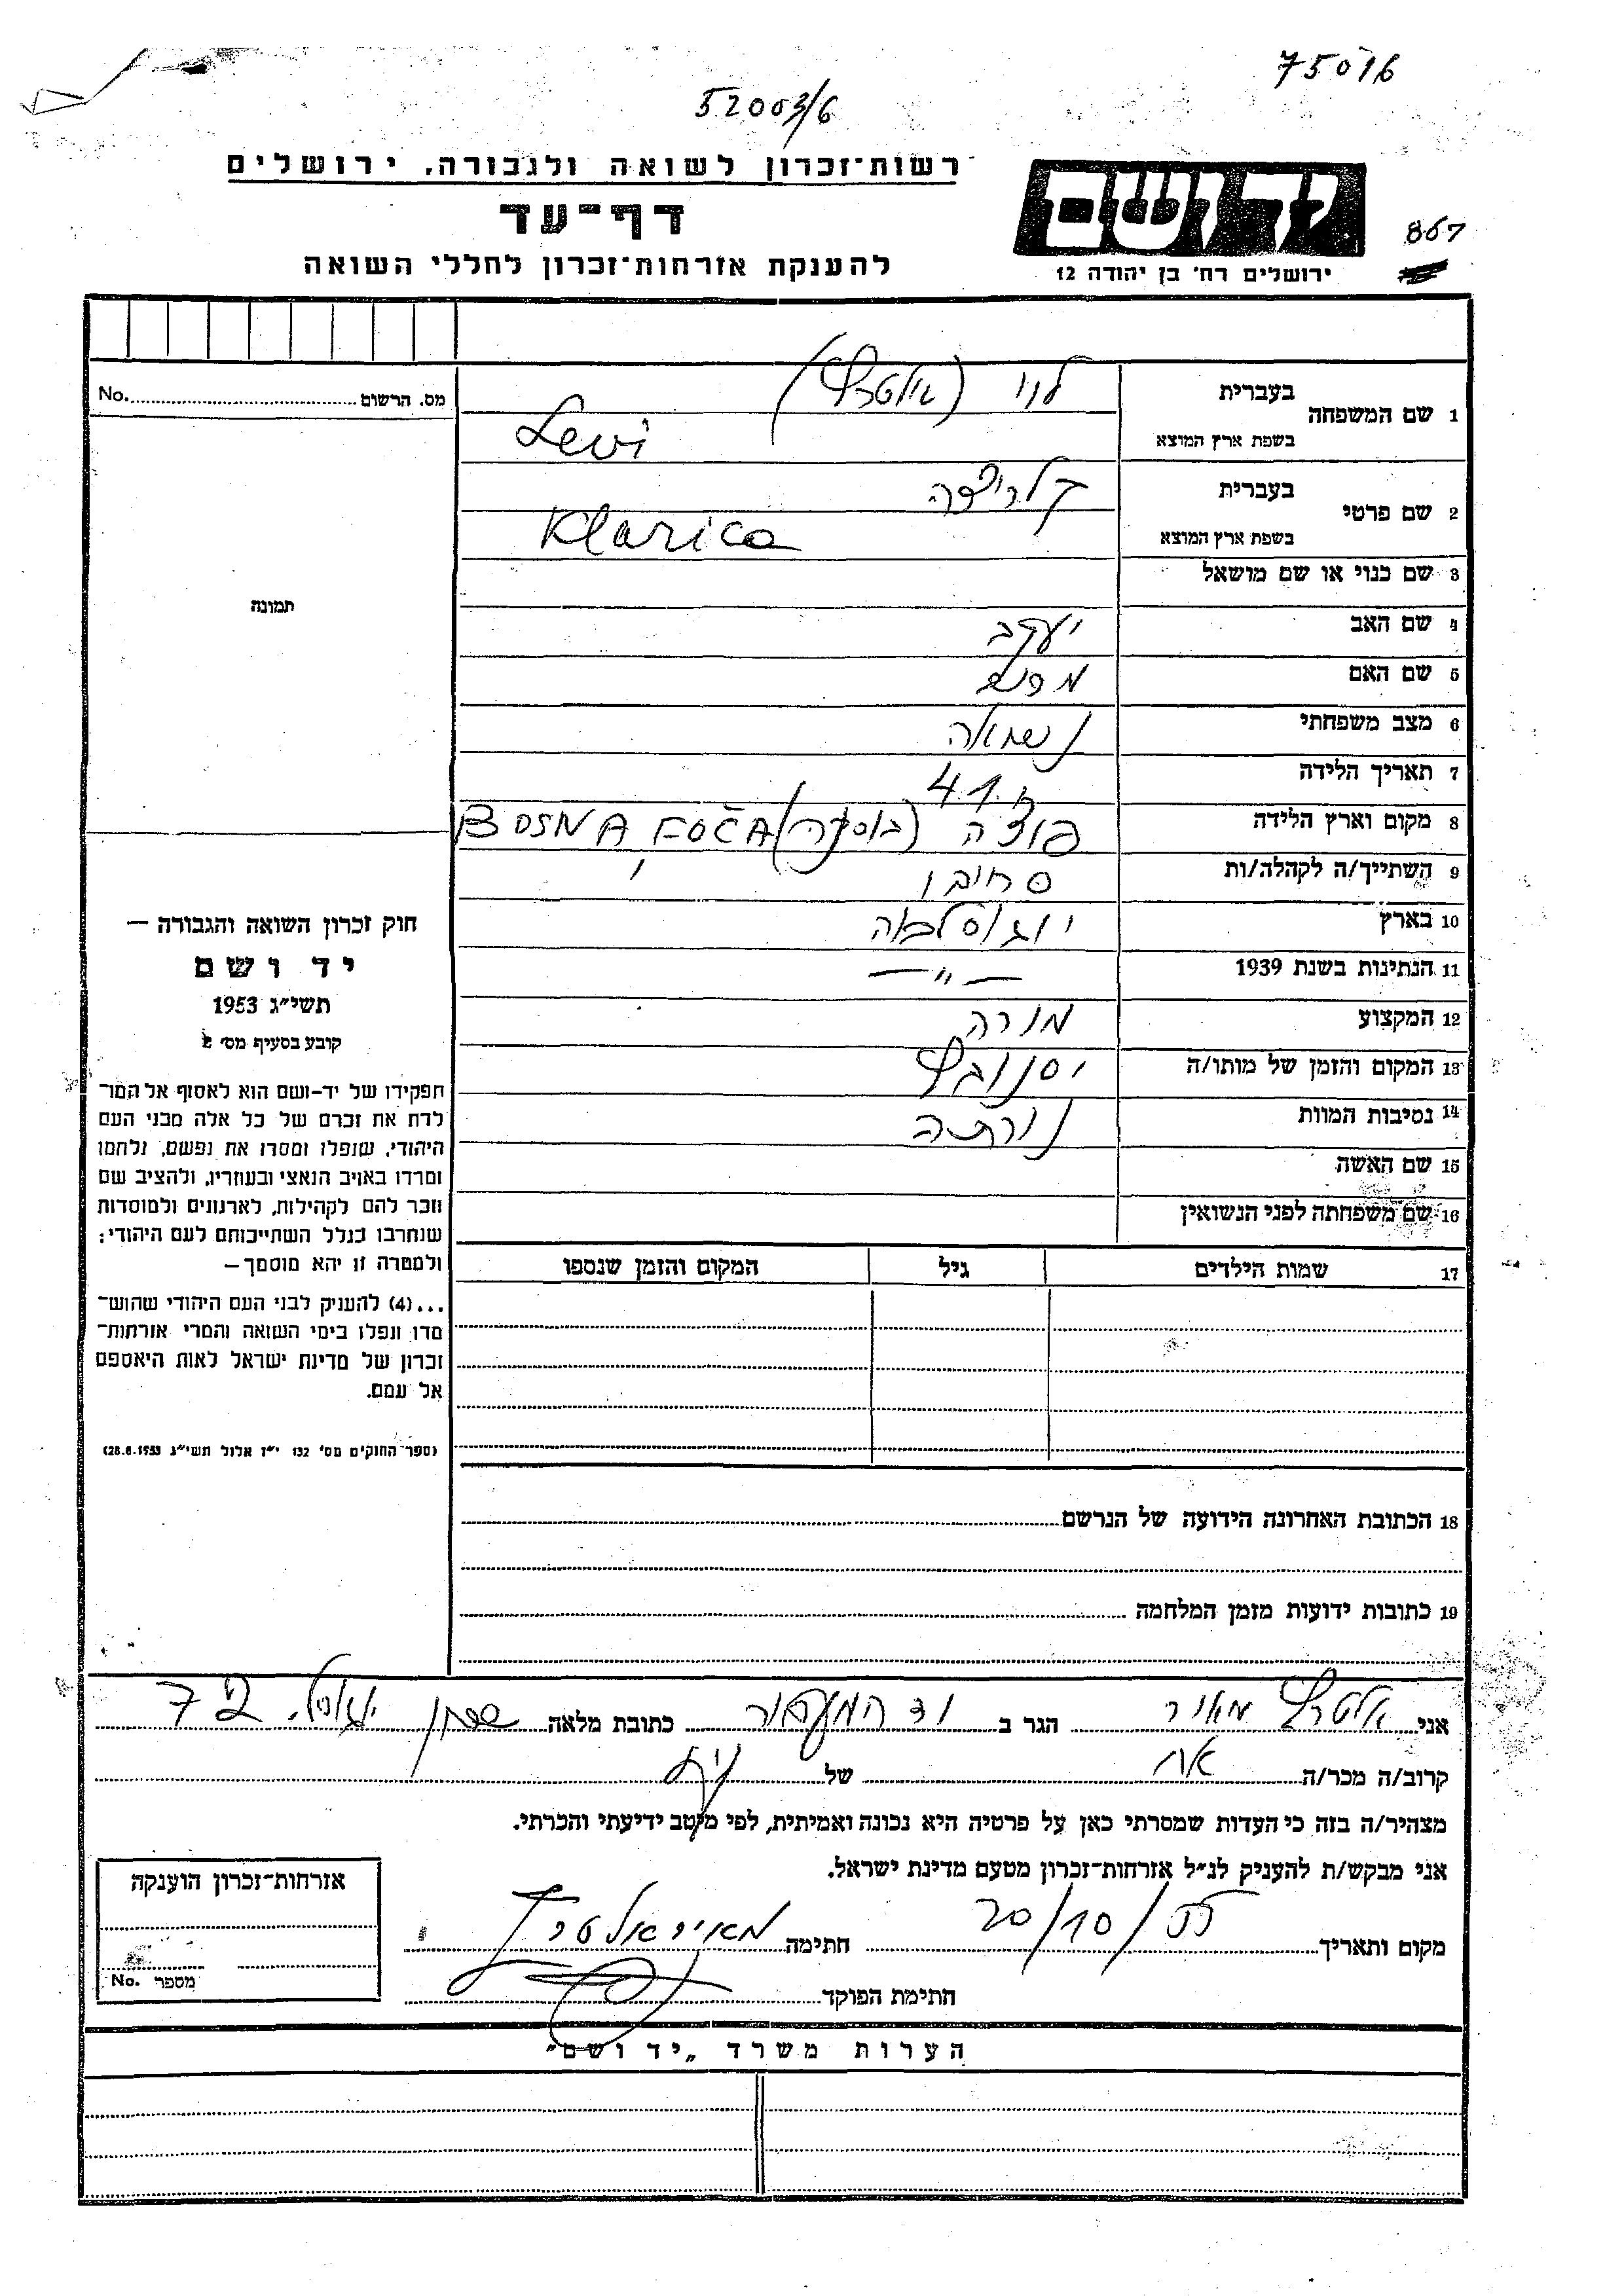 75016
52003/6
רשות־זכרון לשואה ולגבורה, ירושלים
דף־עד
להענקת אזרחות־זכרון לחללי השואה
ידושם
ירושלים רח' בן יהודה 12
867
מס. הרשום No.
1 שם המשפחה
בעברית לוי (אלטרץ)
בשפת ארץ המוצא Levi
2 שם פרטי
בעברית קלריצה
בשפת ארץ המוצא Klarica
3 שם כנוי או שם מושאל
תמונה
4 שם האב יעקב
5 שם האם
6 מצב משפחתי נשואה
7 תאריך הלידה 41
8 מקום וארץ הלידה פוצ'ה (בוסניה) BOSNA, FOČA
9 השתייך/ה לקהלה/ות
10 בארץ יוגוסלביה
11 הנתינות בשנת 1939 — " —
12 המקצוע מורה
13 המקום והזמן של מותו/ה יסנובץ
14 נסיבות המוות
15 שם האשה
16 שם משפחתה לפני הנשואין
17 שמות הילדים גיל המקום והזמן שנספו
חוק זכרון השואה והגבורה —
יד ושם
תשי"ג 1953
קובע בסעיף מס' 2
תפקידו של יד-ושם הוא לאסוף אל המו־
לדת את זכרם של כל אלה מבני העם
היהודי, שנפלו ומסרו את נפשם, נלחמו
ומרדו באויב הנאצי ובעוזריו, ולהציב שם
וזכר להם לקהילות, לארגונים ולמוסדות
שנחרבו בגלל השתייכותם לעם היהודי;
ולמטרה זו יהא מוסמך —
...(4) להעניק לבני העם היהודי שהוש־
מדו ונפלו בימי השואה והמרי אזרחות־
זכרון של מדינת ישראל לאות היאספם
אל עמם.
(ספר החוקים מס' 132 י"ז אלול תשי"ג 28.8.1953)
18 הכתובת האחרונה הידועה של הנרשם
19 כתובות ידועות מזמן המלחמה
אני אלטרץ מאיר הגר ב כתובת מלאה שכון 72
קרוב/ה מכר/ה אח של
מצהיר/ה בזה כי העדות שמסרתי כאן על פרטיה היא נכונה ואמיתית, לפי מיטב ידיעתי והכרתי.
אני מבקש/ת להעניק לנ"ל אזרחות־זכרון מטעם מדינת ישראל.
מקום ותאריך 20/10/55 חתימה מאיר אלטרץ
חתימת הפוקד
אזרחות־זכרון הוענקה
מספר No.
הערות משרד „יד ושם"